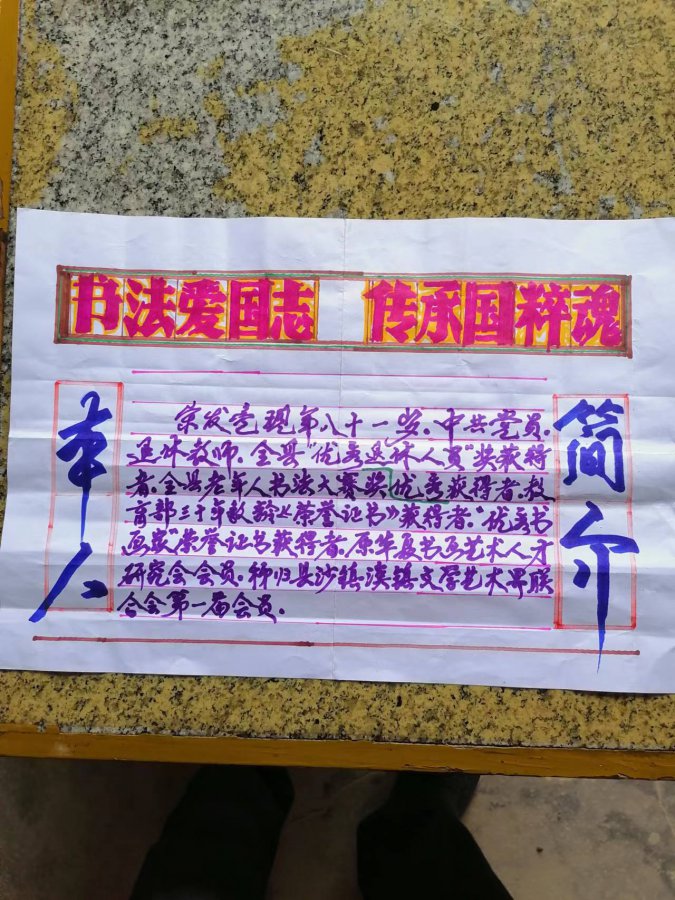 书法爱国志 传承国粹魂
本人
简介
宗发党现年八十一岁.中共党员.
退休教师.全县"优秀退休人员"奖获得
者.全县老年人书法大赛奖优秀获得者.教
育部三十年教龄《荣誉证书》获得者."优秀书
画家"荣誉证书获得者.原华夏书画艺术人才
研究会会员.秭归县沙镇溪镇文学艺术界联
合会第一届会员.